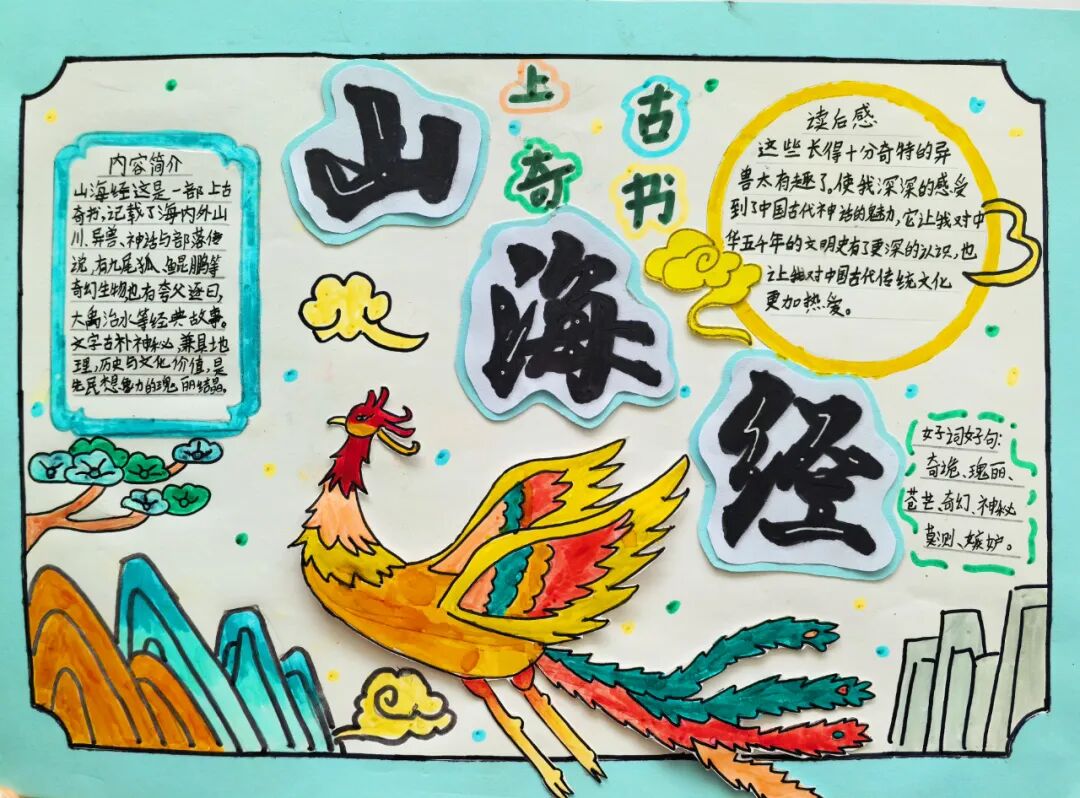 山海经
上古
奇书
内容简介
山海经这是一部上古
奇书,记载了海内外山
川、异兽、神话与部落传
说,有九尾狐、鲲鹏等
奇幻生物也有夸父逐日,
大禹治水等经典故事。
文字古朴神秘,兼具地
理,历史与文化价值,是
先民想象力的瑰丽结晶。
读后感
这些长得十分奇特的异
兽太有趣了,使我深深的感受
到了中国古代神话的魅力,它让我对中
华五千年的文明史有了更深的认识,也
让我对中国古代传统文化
更加热爱。
好词好句:
奇诡、瑰丽、
苍茫、奇幻、神秘
莫测、嫉妒。